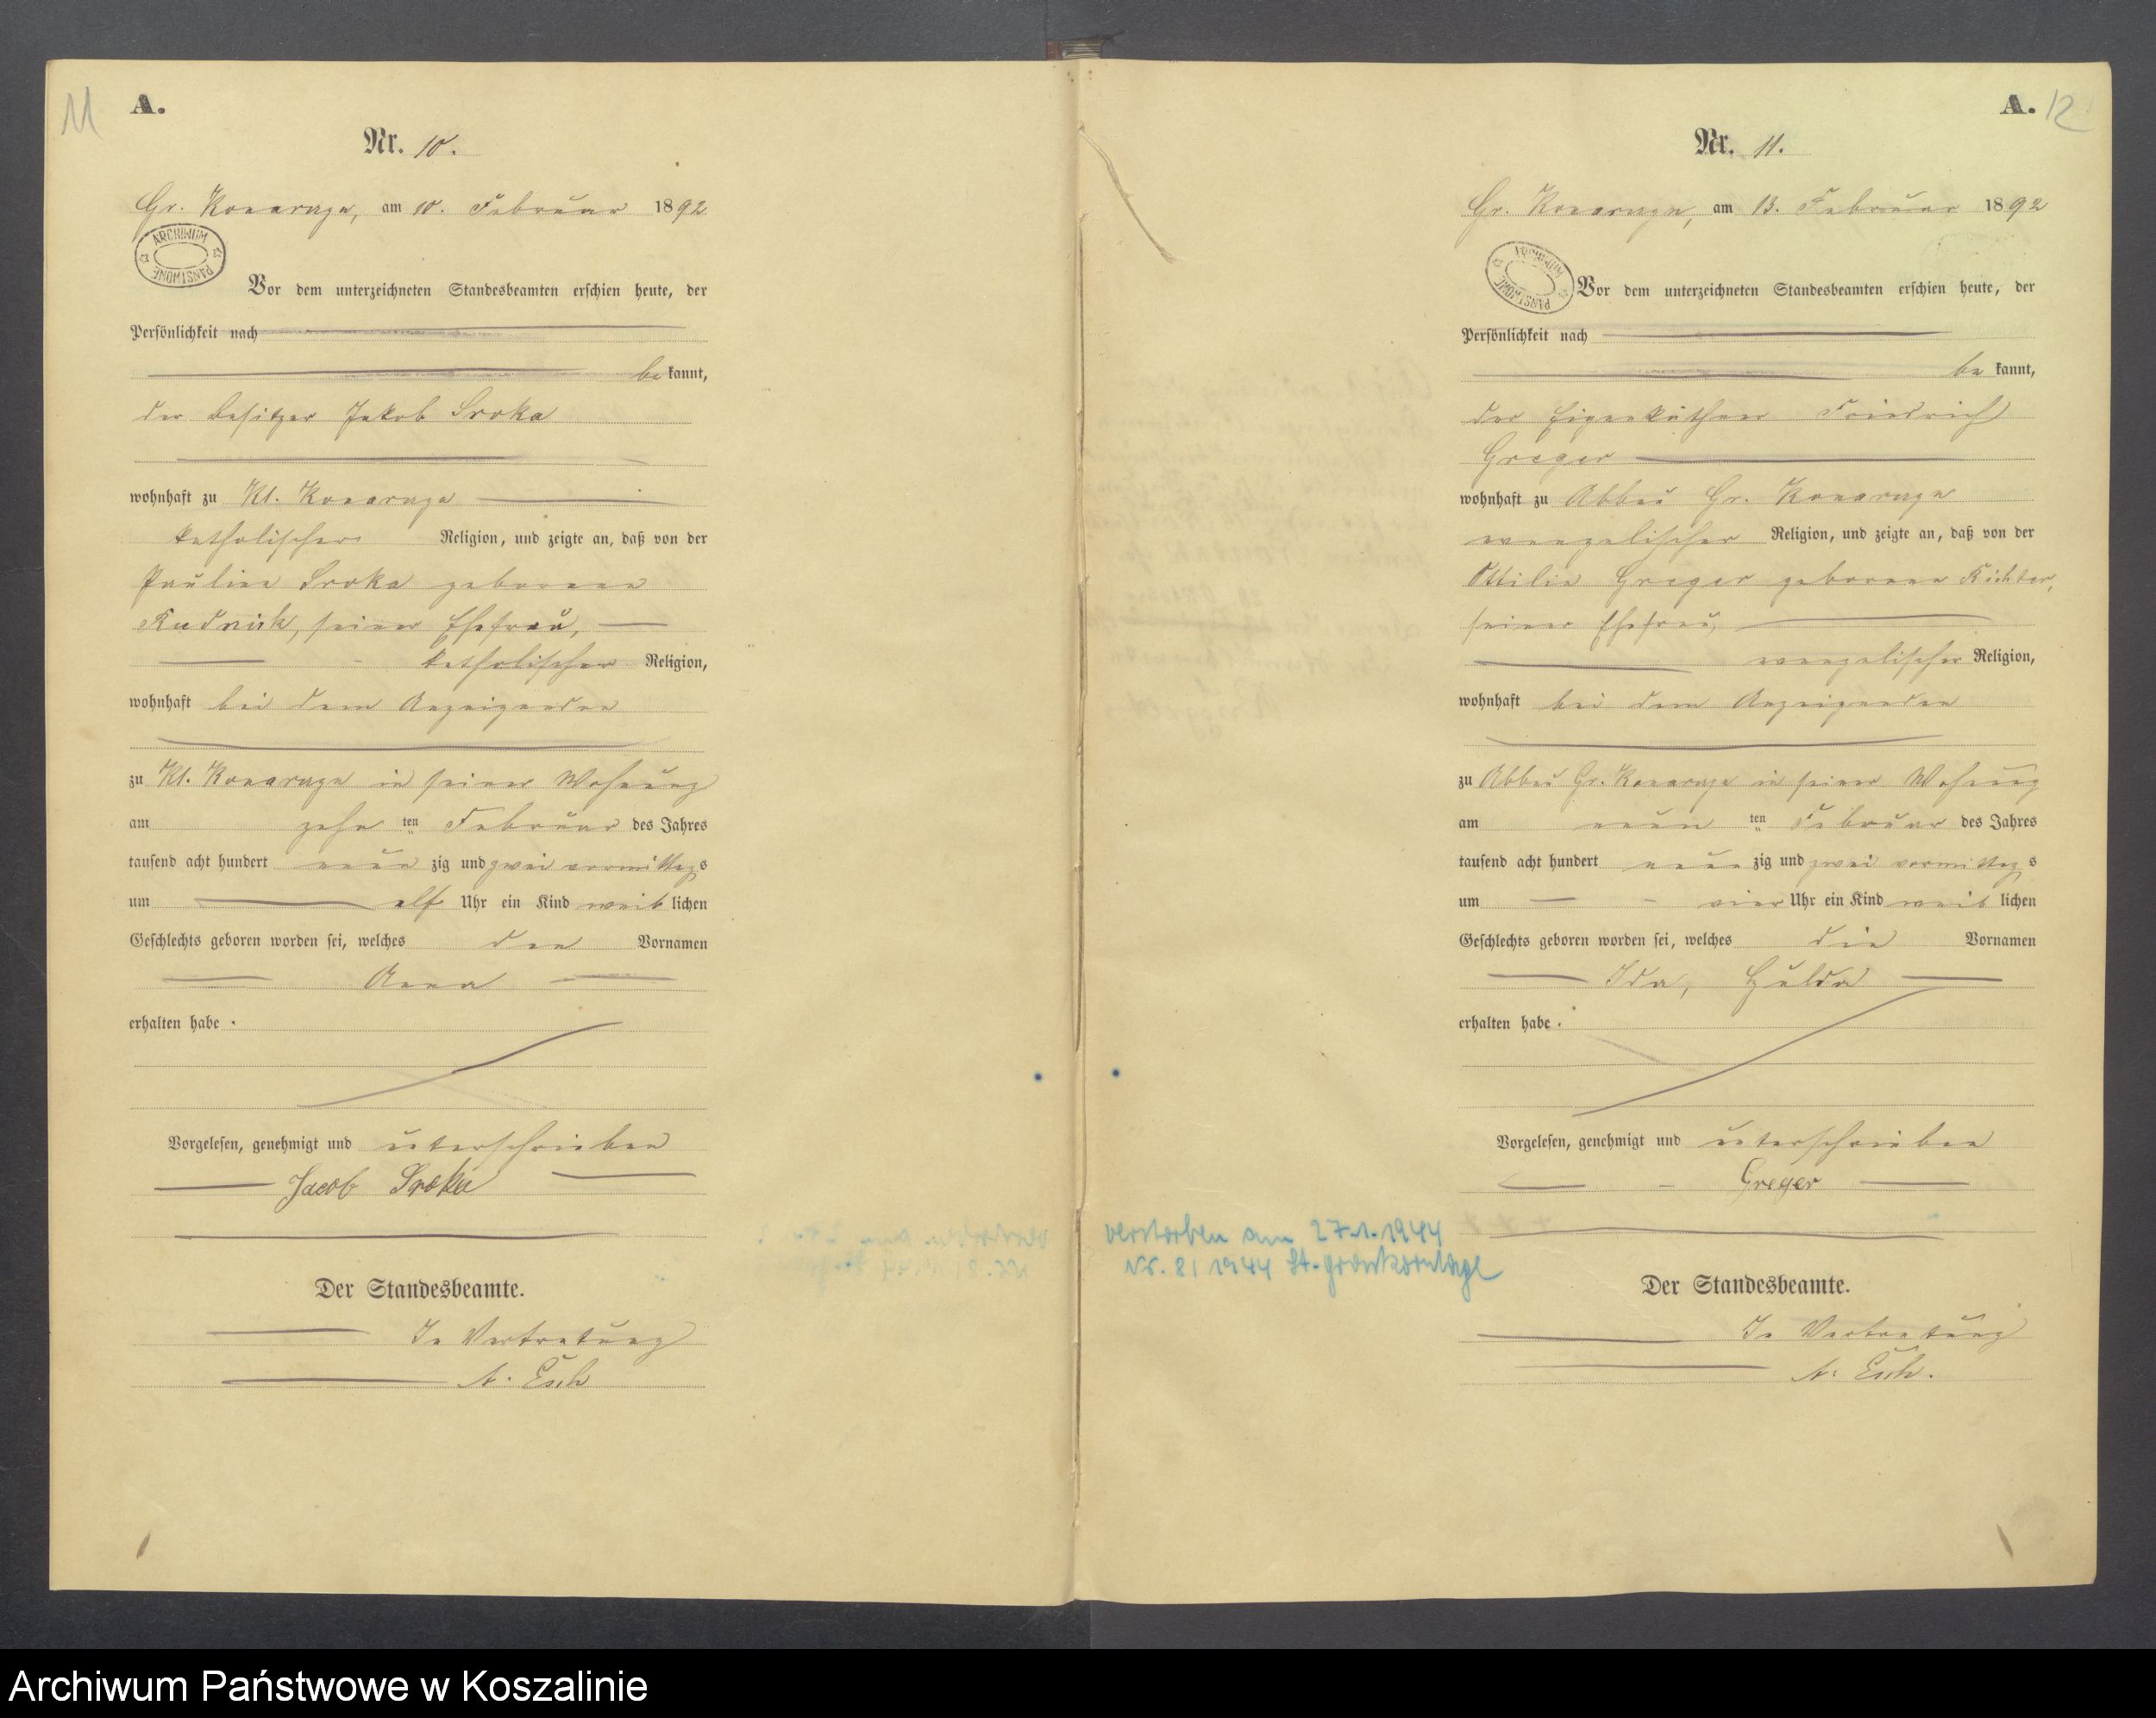 11
A.
Nr. 10.
Gr. Konarczyn, am 10. Februar 1892
ARCHIWUM PANSTWOWE
Vor dem unterzeichneten Standesbeamten erschien heute, der
Persönlichkeit nach
be kannt,
der Besitzer Jakob Sroka
wohnhaft zu Kl. Konarczyn
katholischer Religion, und zeigte an, daß von der
Pauline Sroka geborenen
Rudnick, seiner Ehefrau,
katholischer Religion,
wohnhaft bei dem Anzeigenden
zu Kl. Konarczyn in seiner Wohnung
am zehn ten Februar des Jahres
tausend acht hundert neun zig und zwei vormittag s
um elf Uhr ein Kind weib lichen
Geschlechts geboren worden sei, welches den Vornamen
Anna
erhalten habe.
Vorgelesen, genehmigt und unterschrieben
Jacob Sroka
Der Standesbeamte.
In Vertretung
A. Esch
A. 12
Nr. 11.
Gr. Konarczyn, am 13. Februar 1892
ARCHIWUM PANSTWOWE
Vor dem unterzeichneten Standesbeamten erschien heute, der
Persönlichkeit nach
be kannt,
der Eigenkäthner Friedrich
Greger
wohnhaft zu Abbau Gr. Konarczyn
evangelischer Religion, und zeigte an, daß von der
Ottilie Greger geborenen Richter,
seiner Ehefrau,
evangelischer Religion,
wohnhaft bei dem Anzeigenden
zu Abbau Gr. Konarczyn in seiner Wohnung
am neun ten Februar des Jahres
tausend acht hundert neun zig und zwei vormittag s
um vier Uhr ein Kind weib lichen
Geschlechts geboren worden sei, welches die Vornamen
Ida, Hulda
erhalten habe.
Vorgelesen, genehmigt und unterschrieben
Greger
verstorben am 27.1.1944
Nr. 8/1944 St.
Der Standesbeamte.
In Vertretung
A. Esch.
Archiwum Państwowe w Koszalinie